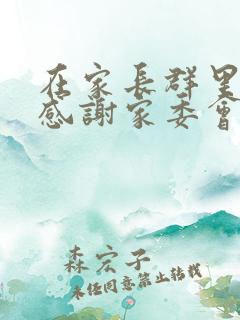 在家長群里
感謝家委會
森宏子
未经同意禁止转载